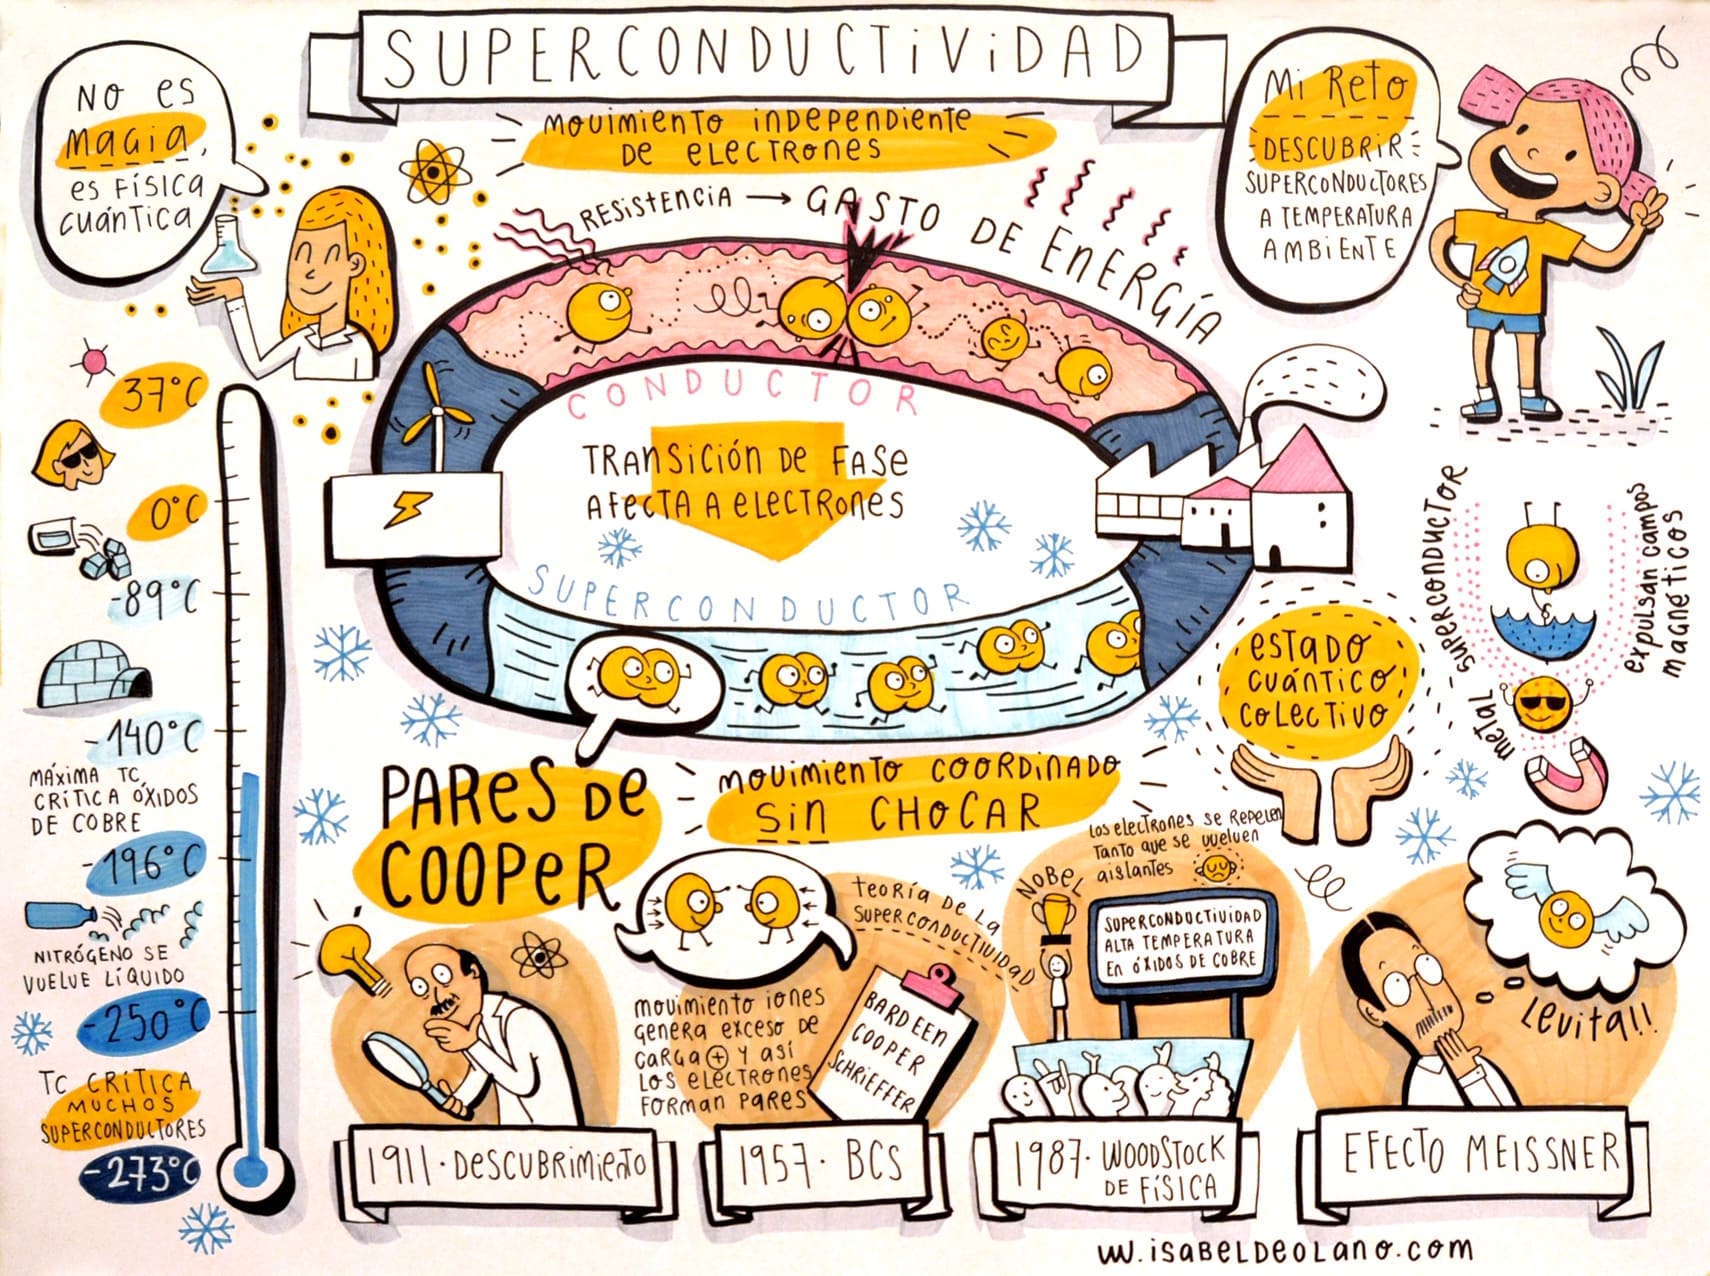 SUPERCONDUCTIVIDAD
NO ES
MAGIA,
ES FÍSICA
CUÁNTICA
MOVIMIENTO INDEPENDIENTE
DE ELECTRONES
RESISTENCIA → GASTO DE ENERGÍA
MI RETO
DESCUBRIR
SUPERCONDUCTORES
A TEMPERATURA
AMBIENTE
CONDUCTOR
TRANSICIÓN DE FASE
AFECTA A ELECTRONES
SUPERCONDUCTOR
37°C
0°C
-89°C
-140°C
MÁXIMA TC
CRÍTICA ÓXIDOS
DE COBRE
-196°C
NITRÓGENO SE
VUELVE LÍQUIDO
-250°C
TC CRÍTICA
MUCHOS
SUPERCONDUCTORES
-273°C
PARES DE
COOPER
MOVIMIENTO COORDINADO
SIN CHOCAR
ESTADO
CUÁNTICO
COLECTIVO
METAL SUPERCONDUCTOR
EXPULSAN CAMPOS
MAGNÉTICOS
MOVIMIENTO IONES
GENERA EXCESO DE
CARGA + Y ASÍ
LOS ELECTRONES
FORMAN PARES
TEORÍA DE LA
SUPERCONDUCTIVIDAD
BARDEEN
COOPER
SCHRIEFFER
LOS ELECTRONES SE REPELEN
TANTO QUE SE VUELVEN
AISLANTES
NOBEL
SUPERCONDUCTIVIDAD
ALTA TEMPERATURA
EN ÓXIDOS DE COBRE
LEVITA!!
1911·DESCUBRIMIENTO
1957·BCS
1987·WOODSTOCK
DE FÍSICA
EFECTO MEISSNER
W.ISABELDEOLANO.COM